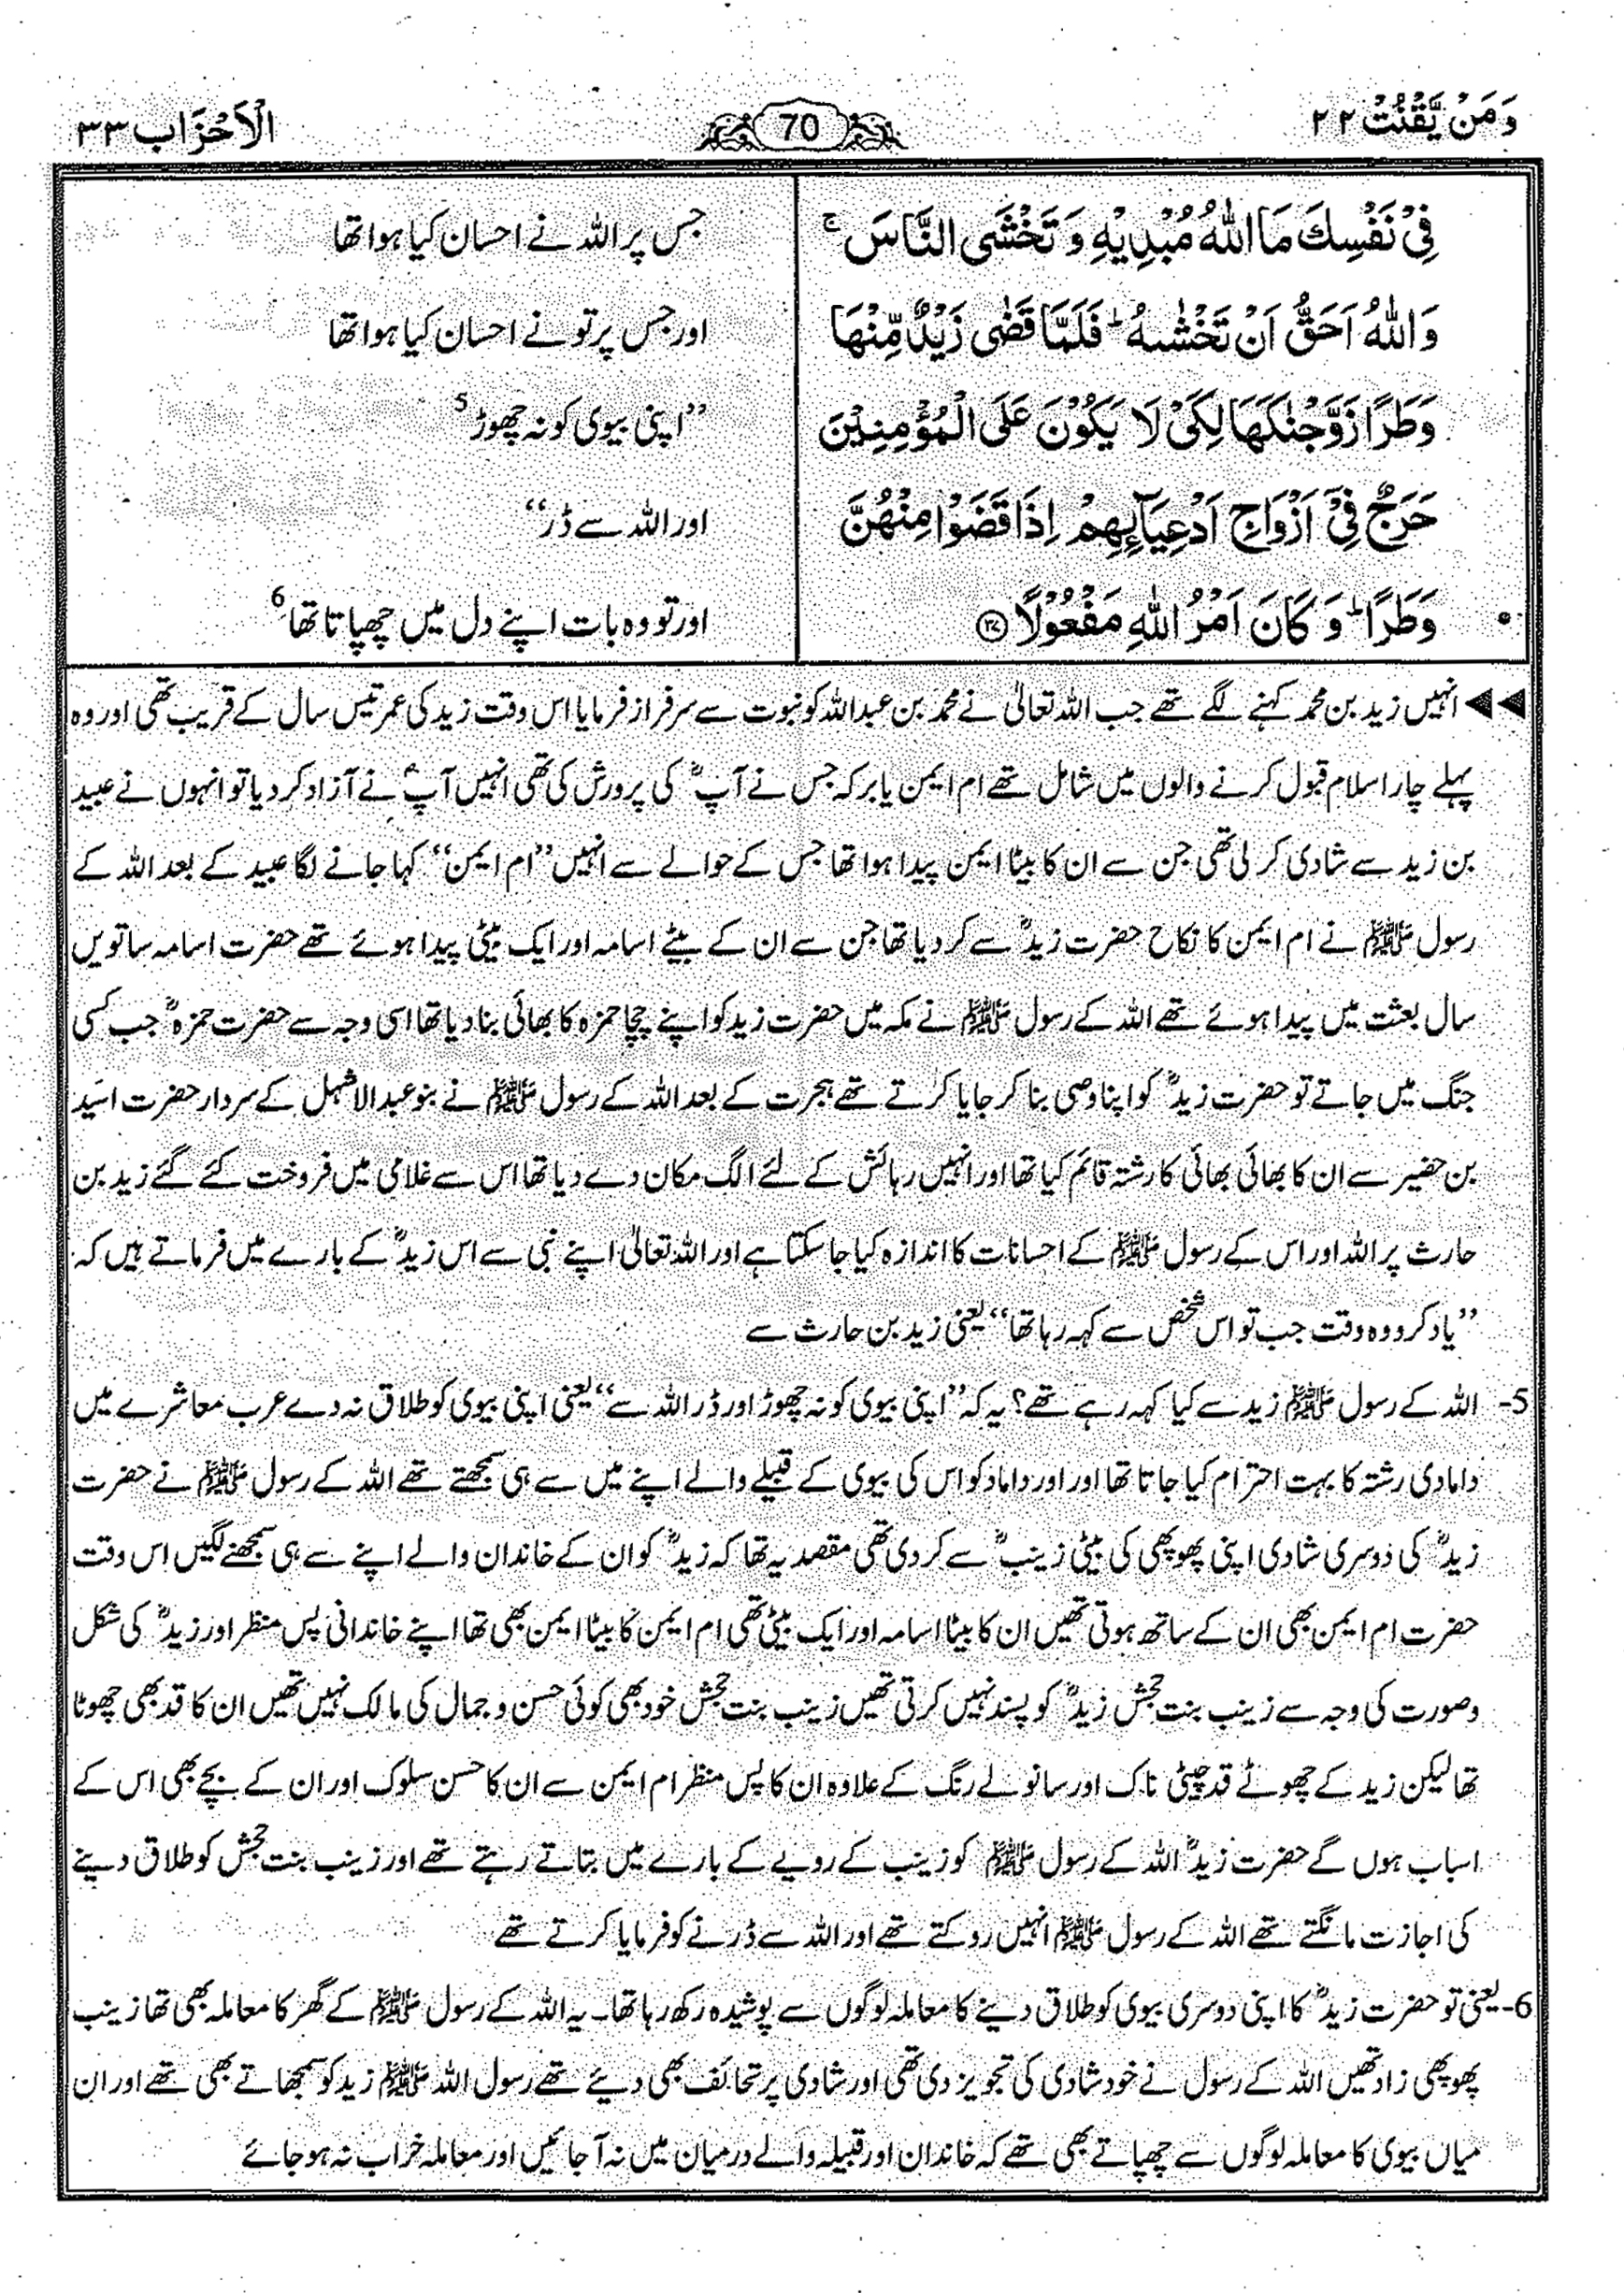 وَمَنْ يَّقْنُتْ ٢٢
70
الْاَحْزَاب ٣٣
فِيْ نَفْسِكَ مَا اللّٰهُ مُبْدِيْهِ وَ تَخْشَى النَّاسَ ۚ
وَاللّٰهُ اَحَقُّ اَنْ تَخْشٰىهُ ؕ فَلَمَّا قَضٰى زَيْدٌ مِّنْهَا
وَطَرًا زَوَّجْنٰكَهَا لِكَيْ لَا يَكُوْنَ عَلَى الْمُؤْمِنِيْنَ
حَرَجٌ فِيْٓ اَزْوَاجِ اَدْعِيَآىِٕهِمْ اِذَا قَضَوْا مِنْهُنَّ
وَطَرًا ؕ وَ كَانَ اَمْرُ اللّٰهِ مَفْعُوْلًا ﴿٣٧﴾
جس پر اللہ نے احسان کیا ہوا تھا
اور جس پر تو نے احسان کیا ہوا تھا
”اپنی بیوی کو نہ چھوڑ 5
اور اللہ سے ڈر“
اور تو وہ بات اپنے دل میں چھپاتا تھا 6
◀◀ انہیں زید بن محمد کہنے لگے تھے جب اللہ تعالیٰ نے محمد بن عبداللہ کو نبوت سے سرفراز فرمایا اس وقت زید کی عمر تیس سال کے قریب تھی اور وہ
پہلے چار اسلام قبول کرنے والوں میں شامل تھے ام ایمن یا برکہ جس نے آپؐ کی پرورش کی تھی انہیں آپؐ نے آزاد کر دیا تو انہوں نے عبید
بن زید سے شادی کر لی تھی جن سے ان کا بیٹا ایمن پیدا ہوا تھا جس کے حوالے سے انہیں ”ام ایمن“ کہا جانے لگا عبید کے بعد اللہ کے
رسول ﷺ نے ام ایمن کا نکاح حضرت زیدؓ سے کر دیا تھا جن سے ان کے بیٹے اسامہ اور ایک بیٹی پیدا ہوئے تھے حضرت اسامہ ساتویں
سال بعثت میں پیدا ہوئے تھے اللہ کے رسول ﷺ نے مکہ میں حضرت زید کو اپنے چچا حمزہ کا بھائی بنا دیا تھا اسی وجہ سے حضرت حمزہؓ جب کسی
جنگ میں جاتے تو حضرت زیدؓ کو اپنا وصی بنا کر جایا کرتے تھے ہجرت کے بعد اللہ کے رسول ﷺ نے بنو عبدالاشہل کے سردار حضرت اسَید
بن حضیر سے ان کا بھائی بھائی کا رشتہ قائم کیا تھا اور انہیں رہائش کے لئے الگ مکان دے دیا تھا اس سے غلامی میں فروخت کئے گئے زید بن
حارث پر اللہ اور اس کے رسول ﷺ کے احسانات کا اندازہ کیا جا سکتا ہے اور اللہ تعالیٰ اپنے نبی سے اس زیدؓ کے بارے میں فرماتے ہیں کہ
”یاد کرو وہ وقت جب تو اس شخص سے کہہ رہا تھا“ یعنی زید بن حارث سے
5- اللہ کے رسول ﷺ زید سے کیا کہہ رہے تھے؟ یہ کہ ”اپنی بیوی کو نہ چھوڑ اور ڈر اللہ سے“ یعنی اپنی بیوی کو طلاق نہ دے عرب معاشرے میں
دامادی رشتہ کا بہت احترام کیا جاتا تھا اور اور داماد کو اس کی بیوی کے قبیلے والے اپنے میں سے ہی سمجھتے تھے اللہ کے رسول ﷺ نے حضرت
زیدؓ کی دوسری شادی اپنی پھوپھی کی بیٹی زینبؓ سے کر دی تھی مقصد یہ تھا کہ زیدؓ کو ان کے خاندان والے اپنے سے ہی سمجھنے لگیں اس وقت
حضرت ام ایمن بھی ان کے ساتھ ہوتی تھیں ان کا بیٹا اسامہ اور ایک بیٹی تھی ام ایمن کا بیٹا ایمن بھی تھا اپنے خاندانی پس منظر اور زیدؓ کی شکل
وصورت کی وجہ سے زینب بنت جحش زیدؓ کو پسند نہیں کرتی تھیں زینب بنت جحش خود بھی کوئی حسن و جمال کی مالک نہیں تھیں ان کا قد بھی چھوٹا
تھا لیکن زید کے چھوٹے قد چپٹی ناک اور سانولے رنگ کے علاوہ ان کا پس منظر ام ایمن سے ان کا حسن سلوک اور ان کے بچے بھی اس کے
اسباب ہوں گے حضرت زیدؓ اللہ کے رسول ﷺ کو زینب کے رویے کے بارے میں بتاتے رہتے تھے اور زینب بنت جحش کو طلاق دینے
کی اجازت مانگتے تھے اللہ کے رسول ﷺ انہیں روکتے تھے اور اللہ سے ڈرنے کو فرمایا کرتے تھے
6- یعنی تو حضرت زیدؓ کا اپنی دوسری بیوی کو طلاق دینے کا معاملہ لوگوں سے پوشیدہ رکھ رہا تھا۔ یہ اللہ کے رسول ﷺ کے گھر کا معاملہ بھی تھا زینب
پھوپھی زاد تھیں اللہ کے رسول نے خود شادی کی تجویز دی تھی اور شادی پر تحائف بھی دیئے تھے رسول اللہ ﷺ زید کو سمجھاتے بھی تھے اور ان
میاں بیوی کا معاملہ لوگوں سے چھپاتے بھی تھے کہ خاندان اور قبیلہ والے درمیان میں نہ آ جائیں اور معاملہ خراب نہ ہو جائے